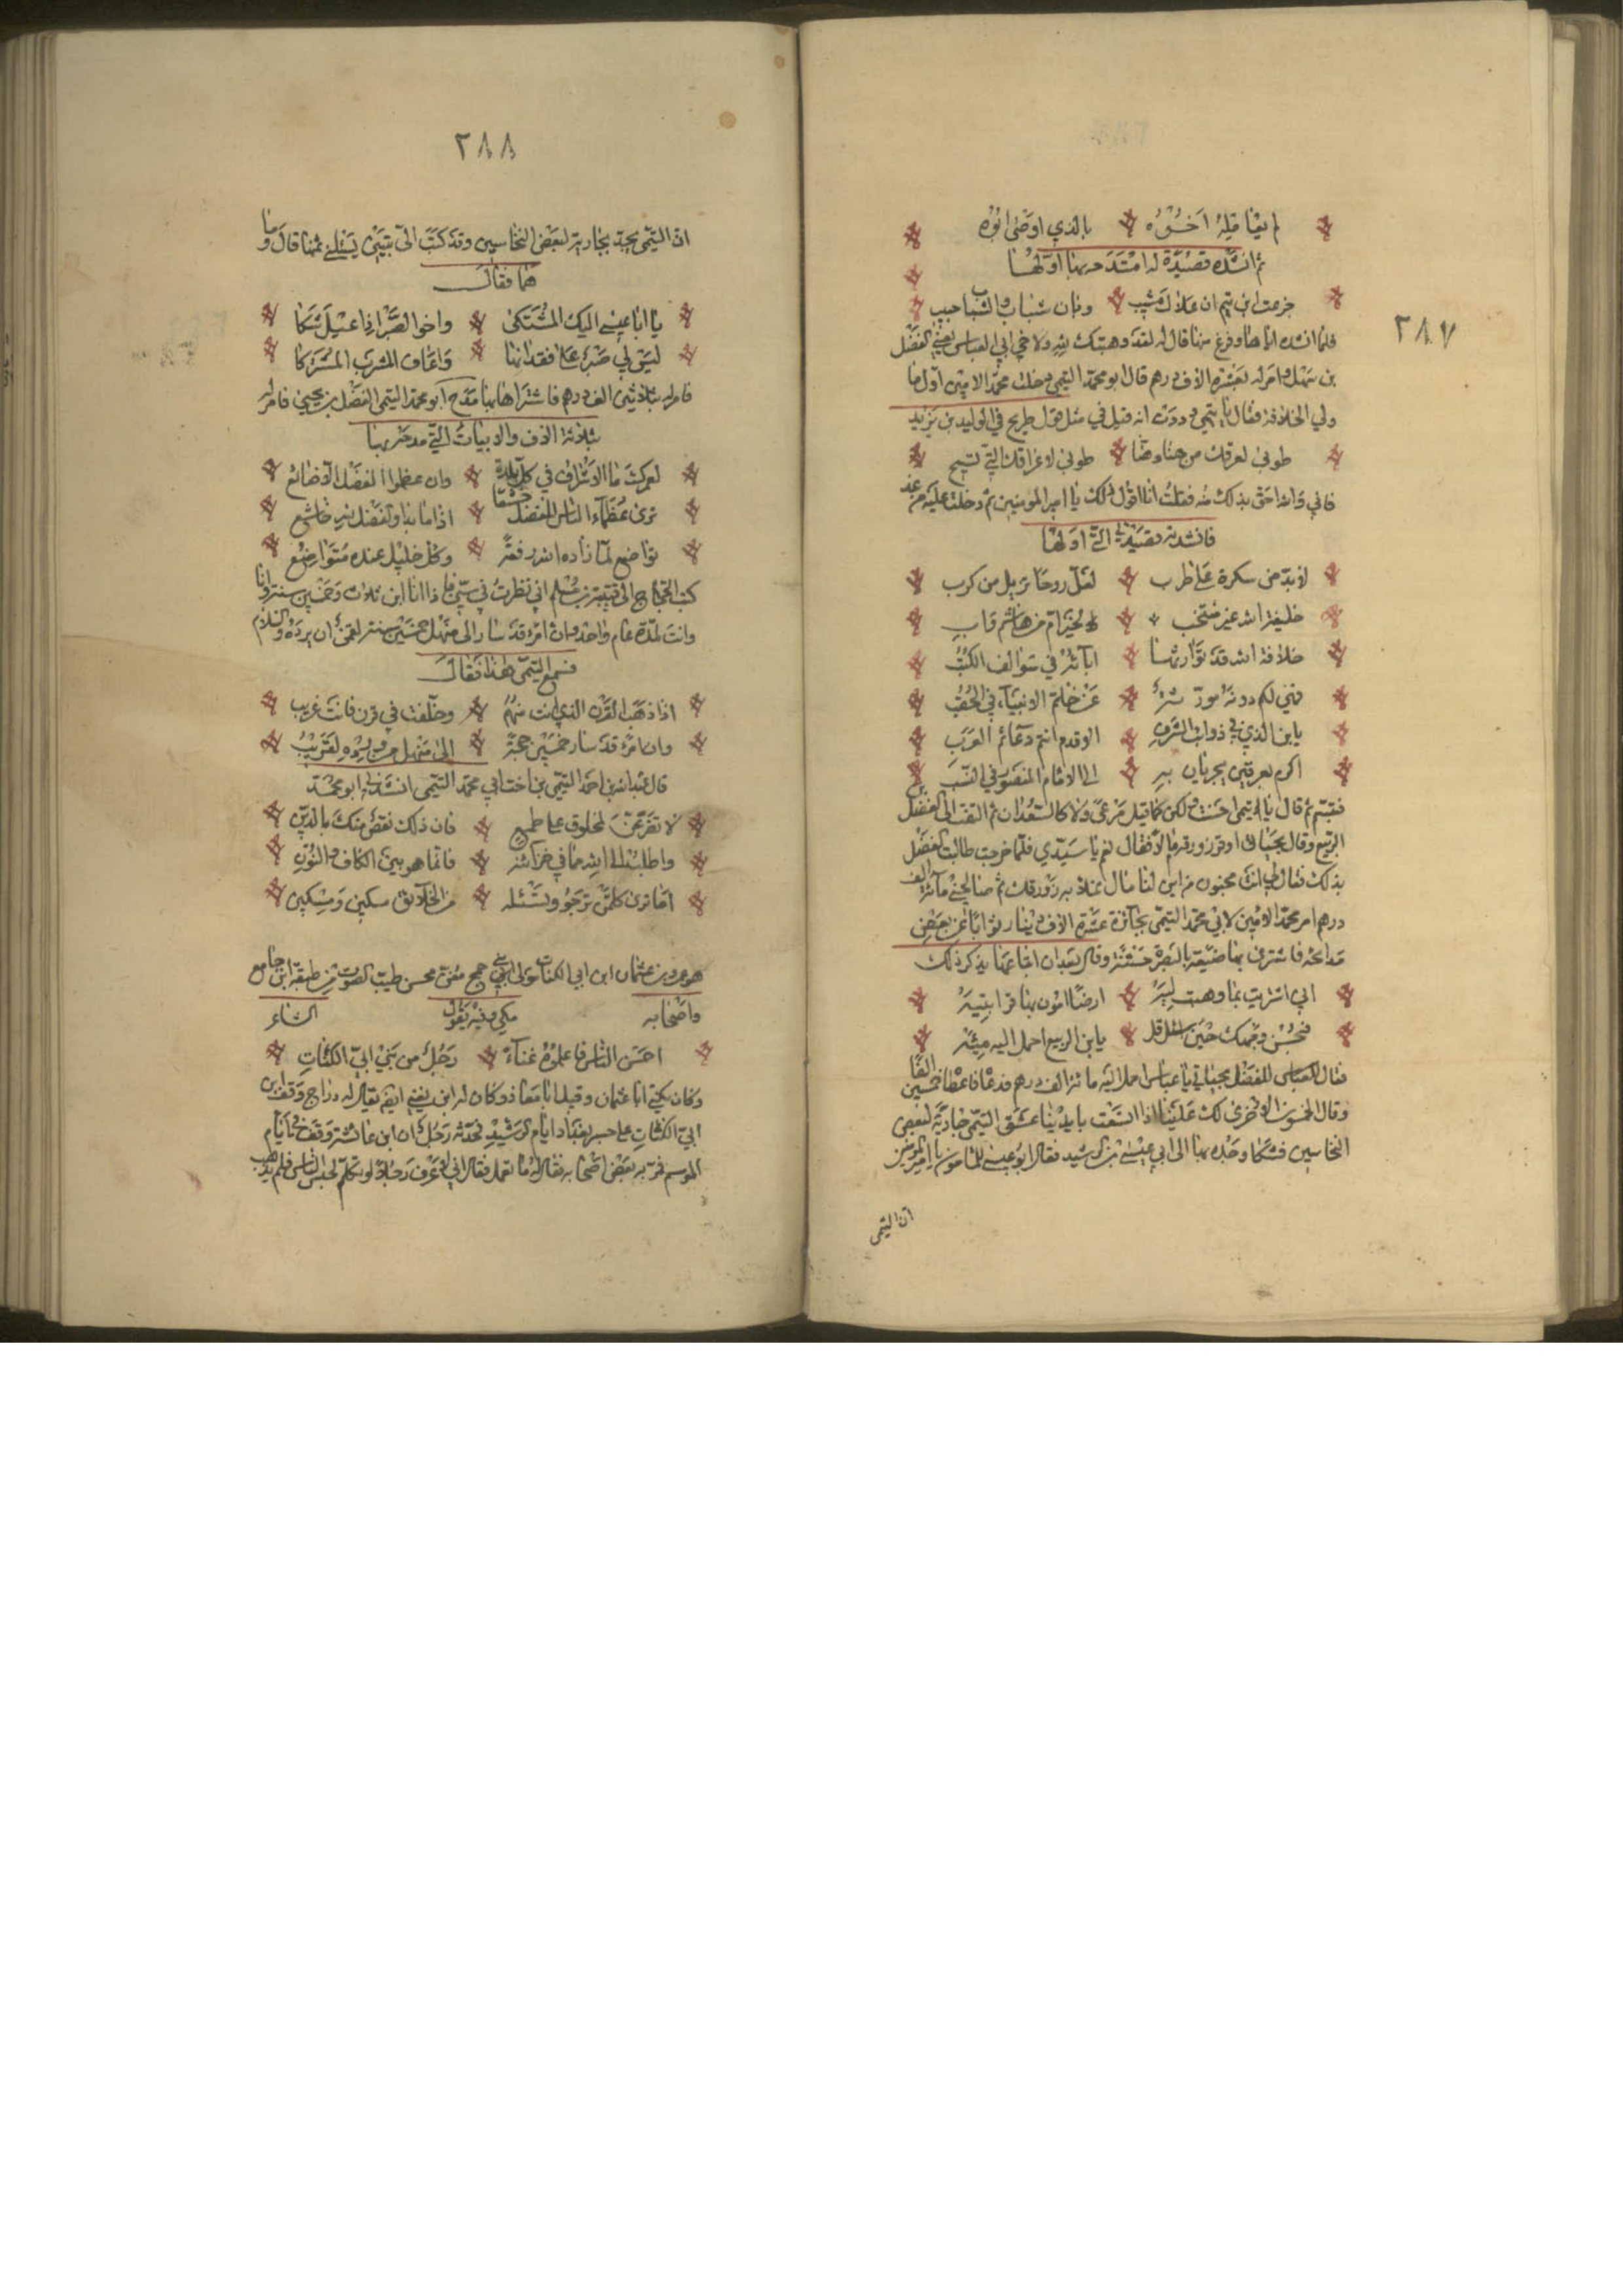 ٢٨٧
لم يعاقله اخوه بالذي اوضى ابوه
ثم انشده قصيدة له امتدحه بها اولها
جزعت ابن تيم ان علاك مشيب وبان شباب والشباب حبيب
فلما انشده اياها وفرغ منها قال له لقد وهبتك لله ولاخي ابي العباس يعني الفضل
بن سهل وامر له بعشرة الاف درهم قال ابو محمد التيمي دخلت محمد الامين اول ما
ولي الخلافة فقال يا تيمي وددت انه قيل في مثل قول طريح في الوليد بن يزيد
طوبى لعرقك من هنا وهنا طوبى لاعراقك التي تشج
فاني والله احق بذلك منه فقلت انا اقول ذلك يا امير المومنين ثم دخلت عليه من غد
فانشدته قصيدتي التي اولها
لا بد من سكرة على طرب لعل روحا يزيل من كرب
خليفة الله غير منتخب لخير ام من هاشم واب
خلافة الله قد توارثها اباؤه في سوالف الكتب
فهي لكم دونه مورثة عن خاتم الانبياء في الحقب
يابن الذي في ذوائب الشرف الاقدم انتم دعائم العرب
اكرم بعرقين يجريان به الى الامام المنصور في النسب
فتبسم ثم قال يا تيمي احسنت ولكن كما قيل مرعى ولا كالسعدان ثم التفت الى الفضل
الربيع وقال بحياتي اوقر زورقه مالا فقال نعم يا سيدي فلما خرجت طالبت الفضل
بذلك فقال لي انت مجنون من اين لنا مال يملاء به زورقك ثم صالحني مائة الف
درهم امر محمد الامين لابي محمد التيمي بجائزة عشرة الاف دينار ثوابا عن بعض
مدائحه فاشترى بها ضيعة بالبصرة حسنة وقال بعد ان ابتاعها يذكر ذلك
اني اشتريت بما وهبت ليه ارضا امون بها قرابتيه
فبحسن وجهك حين اسئل قل يابن الربيع احمل اليه ميه
فقال للعباس للفضل بحياتي يا عباس احمل اليه مائة الف درهم فدعا فاعطاه خمسين الفا
وقال الخمسون الاخرى لك علينا اذا اتسعت بايدينا عشق التيمي جارية لبعض
النخاسين فشكا وجده بها الى ابي عيسى بن الرشيد فقال ابو عيسى للمامون يا امير المومنين
ان التيمي
٢٨٨
ان التيمي يجد بجارية لبعض النخاسين وقد كتب الي بيتين يسئلني ثمنها قال وما
هما فقال
يا ابا عيسى اليك المشتكى واخو الصبر اذا عيل شكا
ليس لي صبر على فقدانها واعاف المشرب المشتركا
فامر له بثلاثين الف درهم فاشتراها بها مدح ابو محمد التيمي الفضل بن يحيى فامر له
بثلاثة الاف والابيات التي مدحه بها
لعمرك ما الاشراف في كل بلدة وان عظموا الفضل الا صنائع
ترى عظماء الناس للفضل خشعا اذا ما بدا والفضل لله خاشع
تواضع لما زاده الله رفعة وكل جليل عنده متواضع
كتب الحجاج الى قتيبة بن مسلم اني نظرت في سني فاذا انا ابن ثلاث وخمسين سنة وانا
وانت لمدة عام واحد وان امرء قد سار الى منهل خمسين سنة لقمن ان يرده والسلام
فسمع التيمي هذا فقال
اذا ذهب القرن الذي انت منهم وخلفت في قرن فانت غريب
وان امرء قد سار خمسين حجة الى منهل من ورده لقريب
قال عبدالله بن احمد التيمي بن اخت ابي محمد التيمي انشدني ابو محمد
لا تخضعن لمخلوق على طمع فان ذلك نقص منك بالدين
واطلب الى الله مما في خزائنه فانما هو بين الكاف والنون
اما ترى كل من ترجو وتسئله من الخلائق مسكين ومسكين
هو عمرو بن عثمان ابن ابي الكنات مولى بني جمح مغن محسن طيب الصوت من طبقة ابن جامع
واصحابه مكي وفيه يقول الشاعر
احسن الناس فاعلموه غناء رجل من بني ابي الكنات
وكان يكنى ابا عثمان وقيل ابا معاذ وكان له ابن يغني ايضا يقال له دراج وقف ابن
ابي الكنات على جسر بغداد ايام الرشيد فحدثه رجل ان ابن عائشة وقف في ايام
الموسم فمر به بعض اصحابه فقال له ما تعمل فقال اني لاعرف رجلا لو تكلم لحبس الناس فلم يذهب